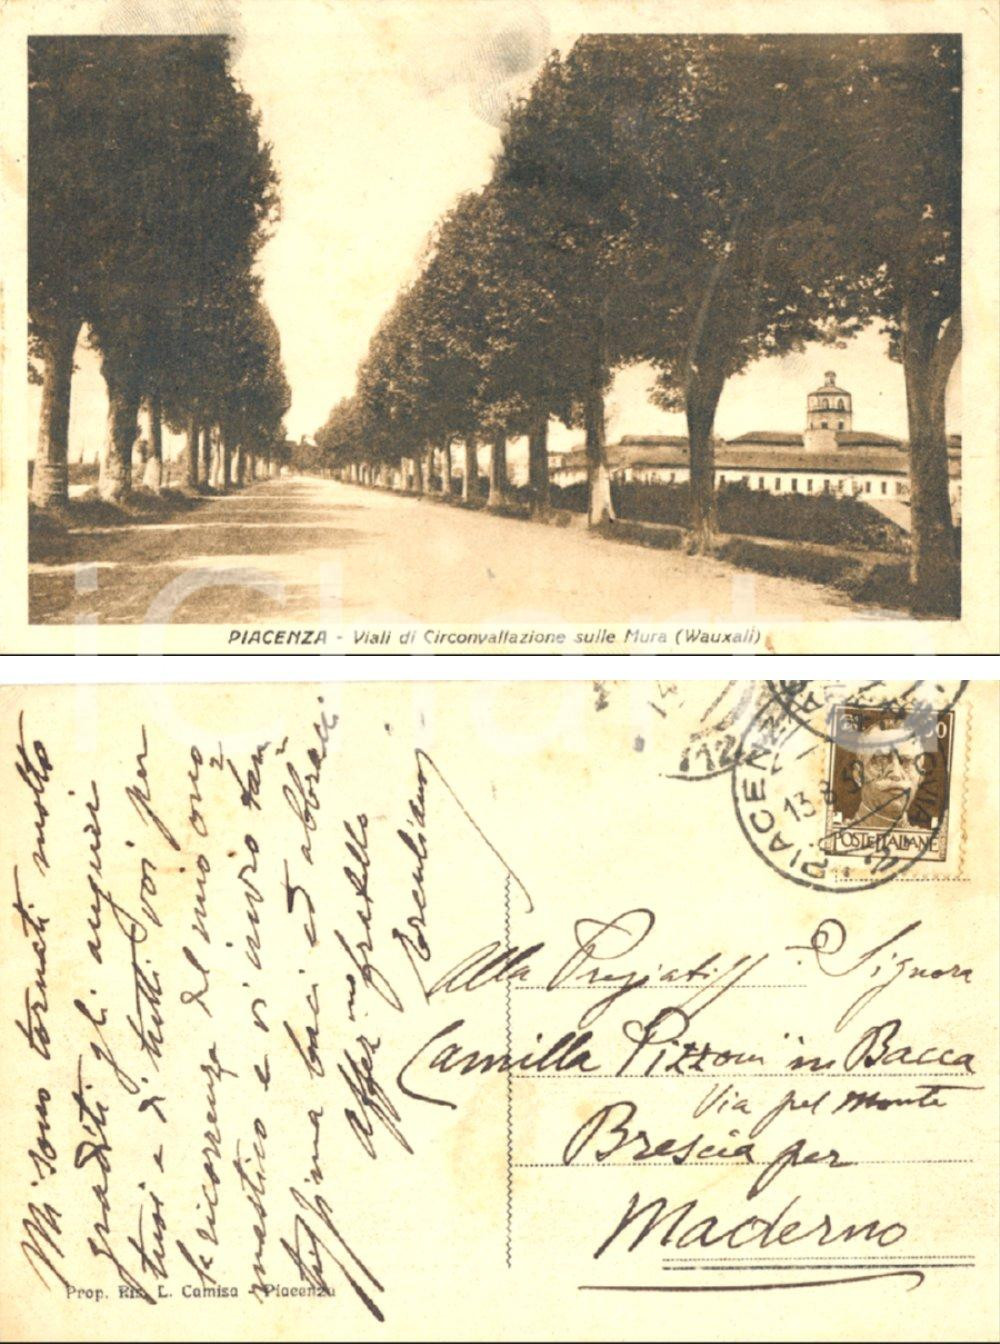 PIACENZA - Viali di Circonvallazione sulle Mura (Wauxali)
iCharta
Mi sono tornati molto
graditi gli auguri
tuoi e di tutti voi per
la ricorrenza del mio ono=
mastico e vi invio tan=
tissima baci ed abbracci
Affez.mo fratello
PIACENZA
13.8.
POSTE ITALIANE
Alla Pregiatiss. Signora
Camilla Pizzoni in Bacca
Via pel Monte
Brescia per
Maderno
Prop. Ris. L. Camisa - Piacenza